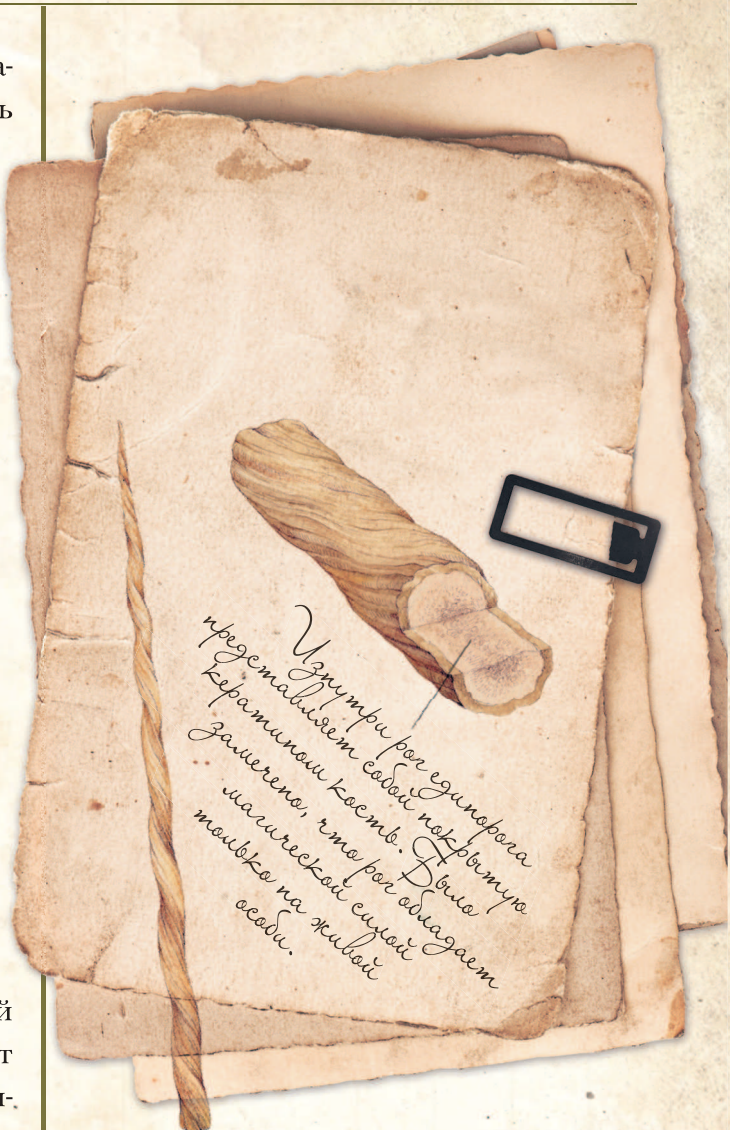 а-
ь
Изнутри рог единорога
представляет собой покрытую
кератином кость. Было
замечено, что рог обладает
магической силой
только на живой
особи.
й
т
и-